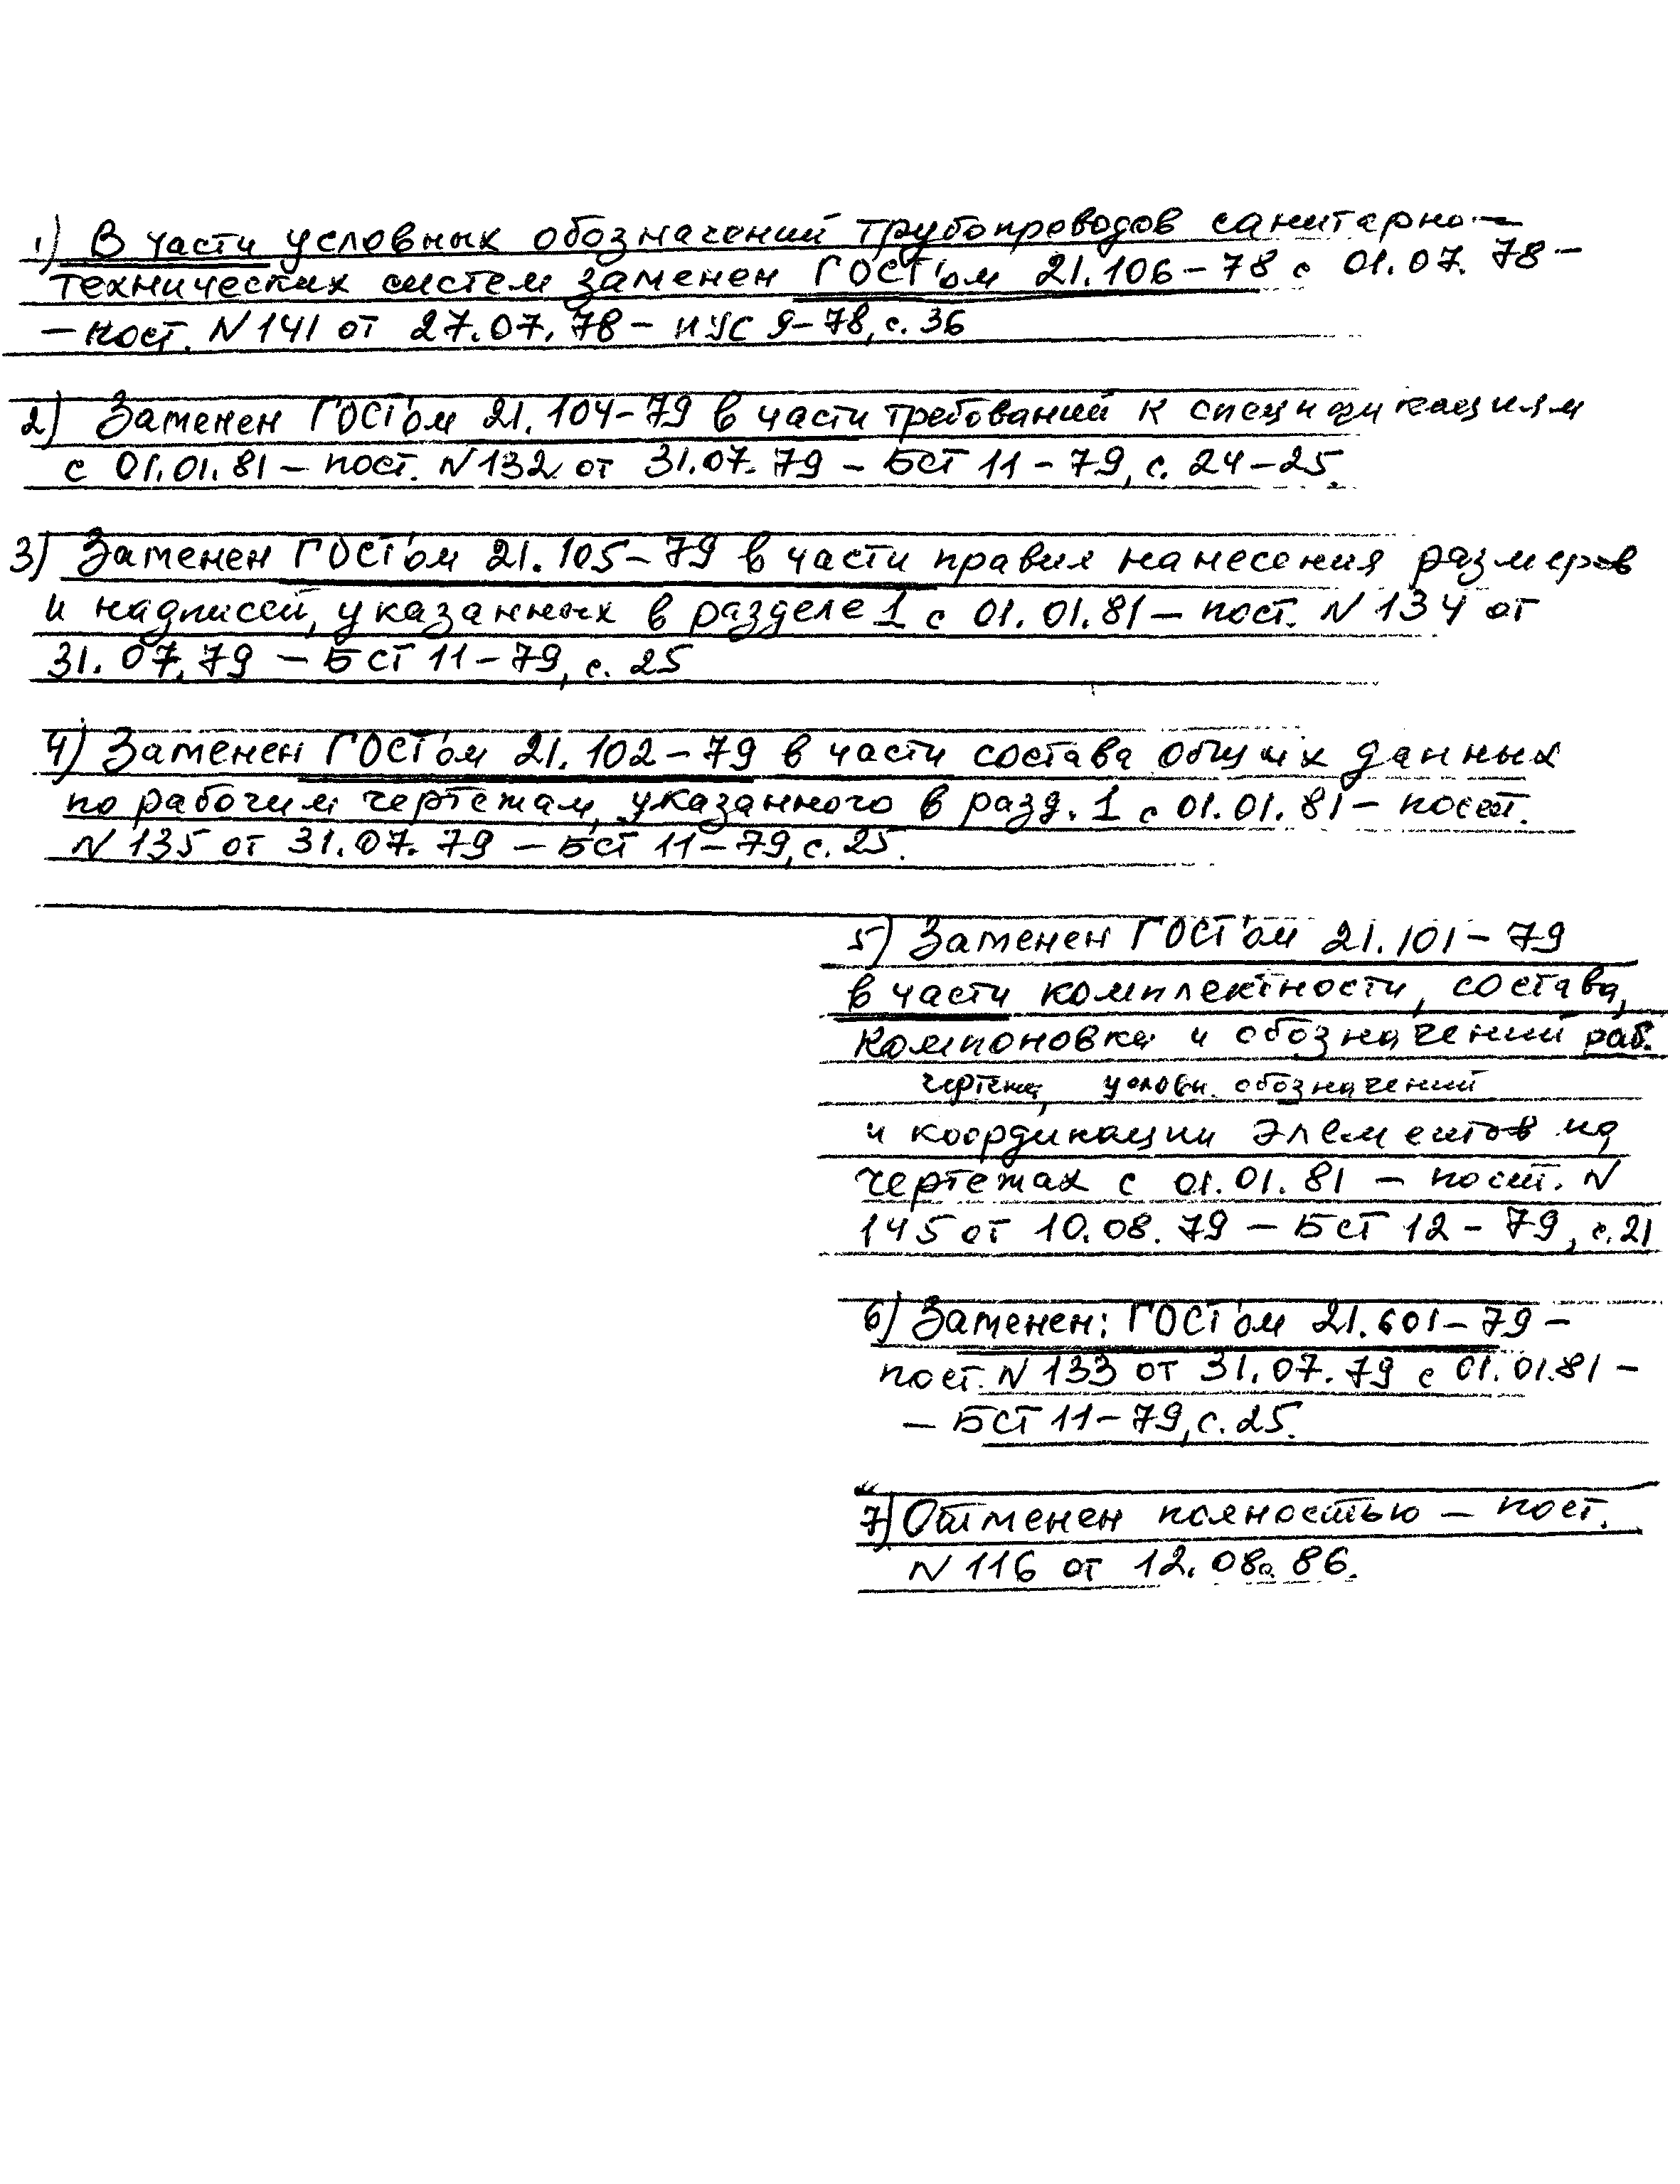 1) В части условных обозначений трубопроводов санитарно-
технических систем заменен ГОСТ'ом 21.106-78 с 01.07.78 -
- пост. N 141 от 27.07.78 - ИУС 9-78, с. 36
2) Заменен ГОСТ'ом 21.104-79 в части требований к спецификациям
с 01.01.81 - пост. N 132 от 31.07.79 - БСТ 11-79, с. 24-25.
3) Заменен ГОСТ'ом 21.105-79 в части правил нанесения размеров
и надписей, указанных в разделе 1 с 01.01.81 - пост. N 134 от
31.07.79 - БСТ 11-79, с. 25
4) Заменен ГОСТ'ом 21.102-79 в части состава общих данных
по рабочим чертежам, указанного в разд. 1 с 01.01.81 - пост.
N 135 от 31.07.79 - БСТ 11-79, с. 25.
5) Заменен ГОСТ'ом 21.101-79
в части комплектности, состава,
компоновки и обозначений раб.
чертежа, условн. обозначений
и координации элементов на
чертежах с 01.01.81 - пост. N
145 от 10.08.79 - БСТ 12-79, с. 21
6) Заменен: ГОСТ'ом 21.601-79 -
пост. N 133 от 31.07.79 с 01.01.81 -
- БСТ 11-79, с. 25.
7) Отменен полностью - пост.
N 116 от 12.08.86.